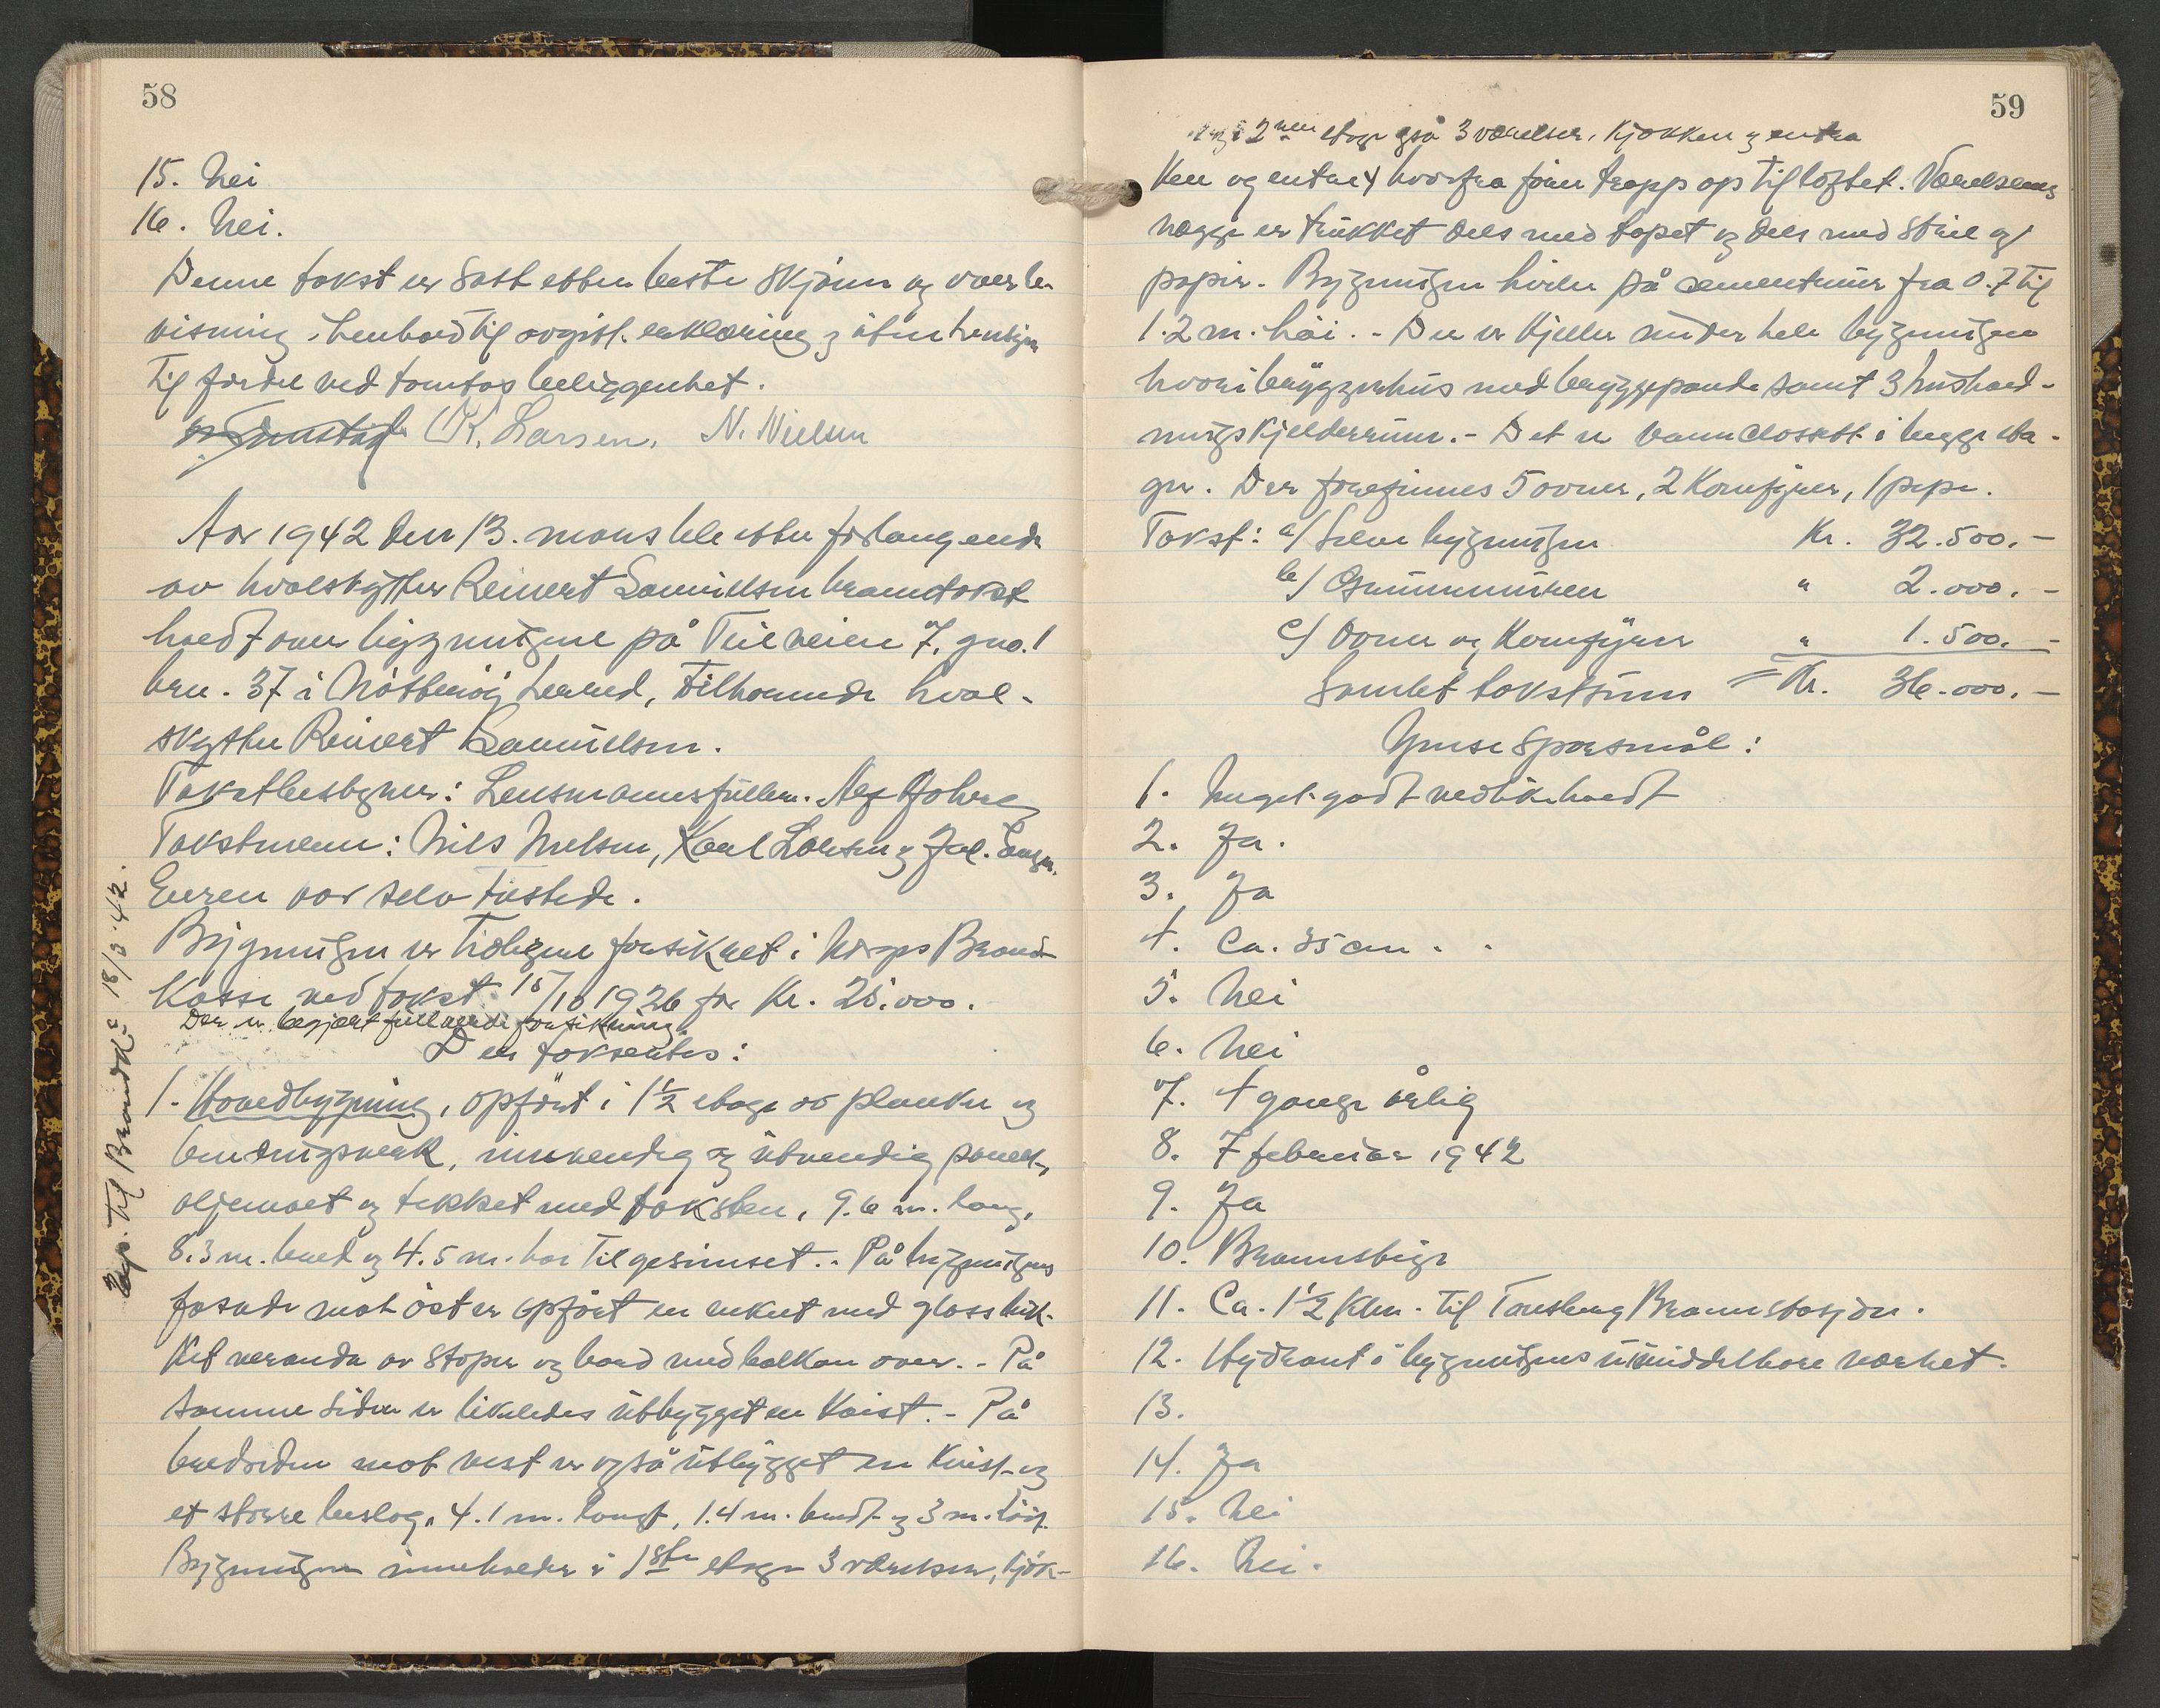 58
15. Nei
16. Nei.
Denne takst er satt etter beste skjønn og overbe-
visning i henhold til avgitt erklæring og uten hensyn
til fordel ved tomtas beliggenhet.
K. Larsen. N. Nielsen
Aar 1942 den 13. mars ble etter forlangende
av hvalskytter Reinert Samuelsen branntakst
holdt over bygningene på Tueveien 7, gno. 1
bru. 37 i Nøtterøy herred, tilhørende hval-
skytter Reinert Samuelsen.
Takstbestyrer: Lensmannsfullm.
Takstmenn: Nils Nielsen, Karl Larsen og
Eieren var selv tilstede.
Bygningen er tidligere forsikret i Norges Brand-
kasse ved takst 1926 for Kr. 25.000.
Der er begjært fullverdiforsikring.
Der takseres:
1. Hovedbygning, opført i 1½ etage av planker og
bindingsverk, innvendig og utvendig panelt,
oljemalt og tekket med taksten, 9.6 m. lang,
8.3 m. bred og 4.5 m. høi til gesimset. - På bygningens
fasade mot øst er opført en enkelt med glass luk-
ket veranda av stolper og bord med balkon over. - På
samme siden er likeledes utbygget en kvist. - På
bredsiden mot vest er også utbygget en kvist og
et større bislag, 4.1 m. langt, 1.4 m. bredt og 3 m. høit.
Bygningen inneholder i 1ste etage 3 værelser, kjøk-
Exp. til Brandk. 18/3-42.
59
og i 2nen etage også 3 værelser, kjøkken og entre
ken og entre hvorfra fører trapp op til loftet. Værelsenes
vegger er trukket dels med tapet og dels med strie og
papir. Bygningen hviler på cementmur fra 0.7 til
1.2 m. høi. - Der er kjeller under hele bygningen
hvori bryggerhus med bryggepande samt 3 hushold-
nings kjelderrum. - Det er vannclosett i begge eta-
ger. Der forefinnes 5 ovner, 2 komfyrer, 1 pipe.
Takst: a/ Selve bygningen Kr. 32.500.-
b/ Grunnmuren " 2.000.-
c/ Ovner og komfyrer " 1.500.-
Samlet takstsum = Kr. 36.000.-
Ymse spørsmål:
1. Meget godt vedlikeholdt
2. Ja.
3. Ja
4. Ca. 35 cm. .
5. Nei
6. Nei
7. 4 gange årlig
8. 7 februar 1942
9. Ja
10. Brannstige
11. Ca. 1½ Klm. til Tønsberg Brannstasjon.
12. Hydrant i bygningens umiddelbare nærhet.
13.
14. Ja
15. Nei
16. Nei.